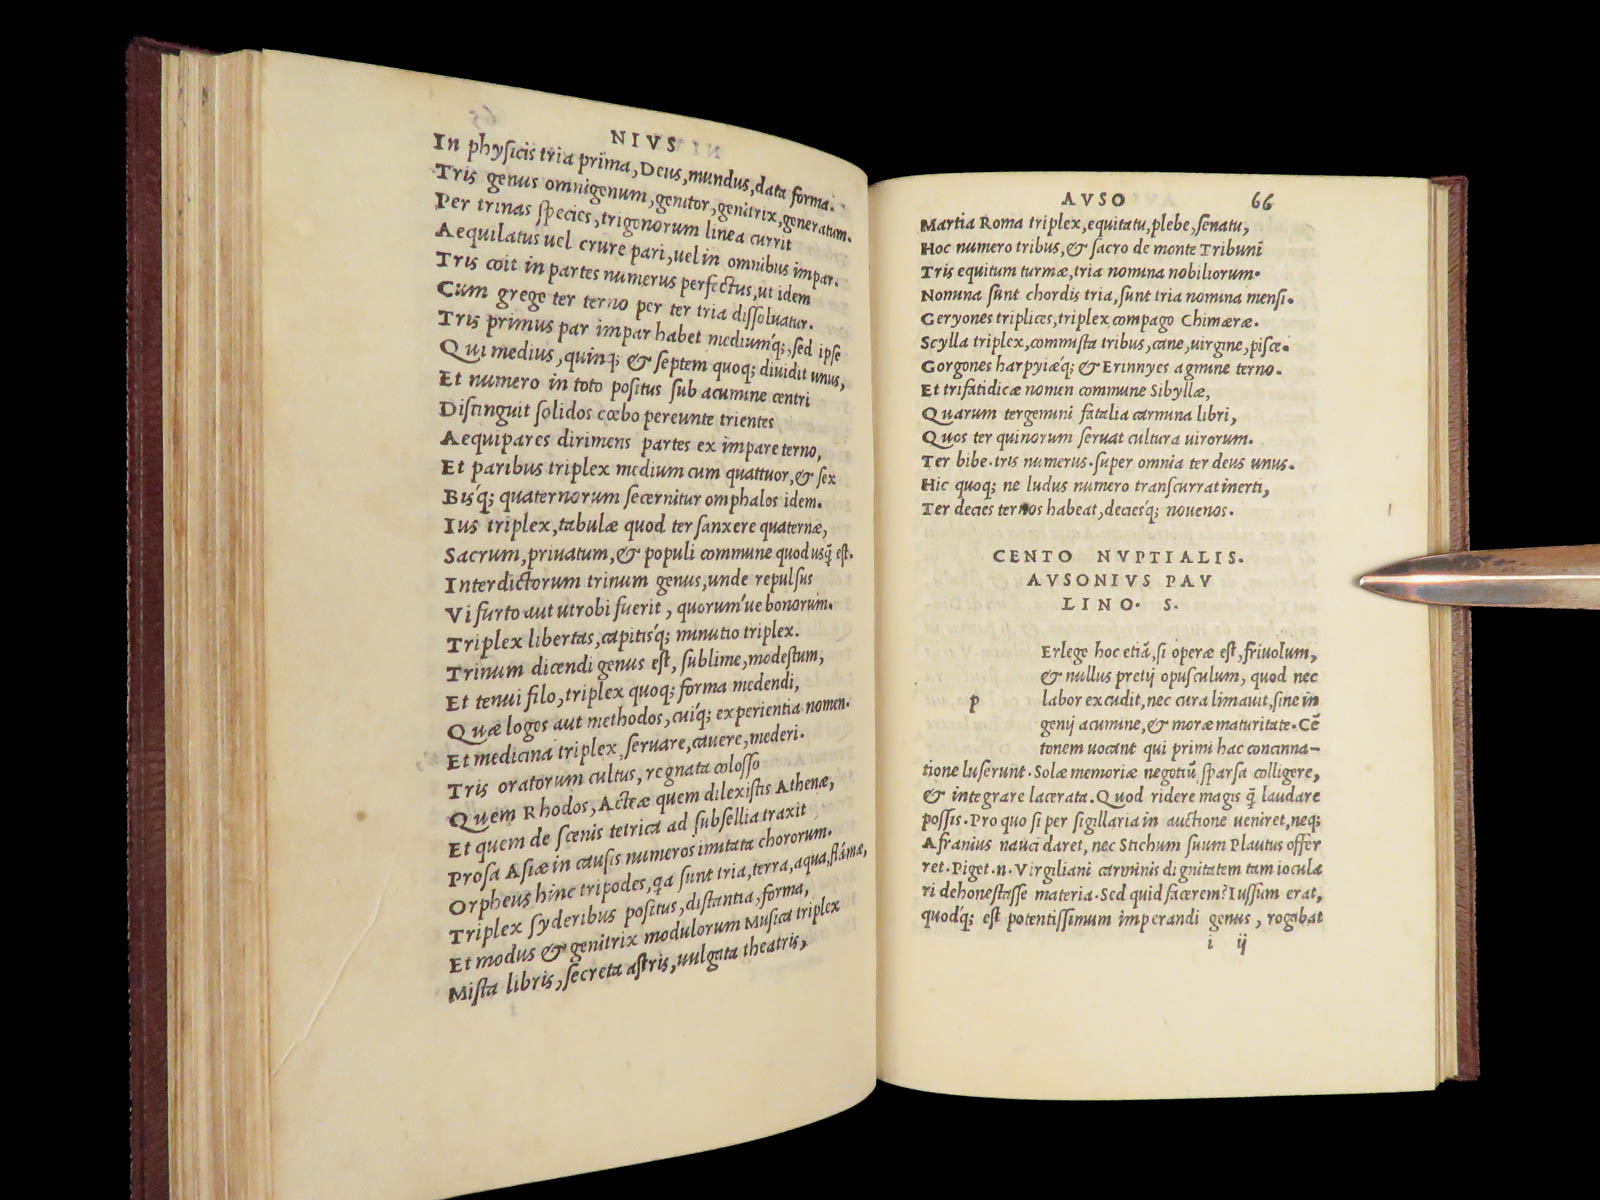 NIVS
In physicis tria prima, Deus, mundus, data forma.
Tris genus omnigenum, genitor, genitrix, generatum.
Per trinas species, trigonorum linea currit
Aequilatus uel crure pari, uel in omnibus impar.
Tris coit in partes numerus perfectus, ut idem
Cum grege ter terno per ter tria dissoluatur.
Tris primus par impar habet mediumq́;, sed ipse
Qui medius, quinq; & septem quoq; diuidit unus,
Et numero in toto positus sub acumine centri
Distinguit solidos cœbo pereunte trientes
Aequipares dirimens partes ex impare terno,
Et paribus triplex medium cum quattuor, & sex
Bisq́; quaternorum secernitur omphalos idem.
Ius triplex, tabulæ quod ter sanxere quaternæ,
Sacrum, priuatum, & populi commune quod usq̃ est.
Interdictorum trinum genus, unde repulsus
Vi furto aut utrobi fuerit, quorum'ue bonorum.
Triplex libertas, capitisq́; minutio triplex.
Trinum dicendi genus est, sublime, modestum,
Et tenui filo, triplex quoq; forma medendi,
Quæ logos aut methodos, cuiq́; experientia nomen.
Et medicina triplex, seruare, cauere, mederi.
Tris oratorum cultus, regnata colosso
Quem Rhodos, Acteæ quem dilexistis Athenæ,
Et quem de scenis tetrica ad subsellia traxit
Prosa Asiæ in causis numeros imitata chororum.
Orpheus hinc tripodes, q̃a sunt tria, terra, aqua, flãmæ,
Triplex syderibus positus, distantia, forma,
Et modus & genitrix modulorum Musica triplex
Mista libris, secreta astris, uulgata theatris,
AVSO 66
Martia Roma triplex, equitatu, plebe, senatu,
Hoc numero tribus, & sacro de monte Tribuni
Tris equitum turmæ, tria nomina nobiliorum.
Nomina sunt chordis tria, sunt tria nomina mensi.
Geryones triplices, triplex compago Chimæræ.
Scylla triplex, commista tribus, cane, uirgine, pisce.
Gorgones harpyiæq́; & Erinnyes agmine terno.
Et trifatidicæ nomen commune Sibyllæ,
Quarum tergemini fatalia carmina libri,
Quos ter quinorum seruat cultura uirorum.
Ter bibe. tris numerus. super omnia ter deus unus.
Hic quoq; ne ludus numero transcurrat inerti,
Ter decies ternos habeat, deciesq́; nouenos.
CENTO NVPTIALIS.
AVSONIVS PAV
LINO. S.
p Erlege hoc etiã, si operæ est, friuolum,
& nullus pretij opusculum, quod nec
labor excudit, nec cura limauit, sine in
genij acumine, & moræ maturitate. Cẽ
tonem uocant qui primi hac concinna-
tione luserunt. Solæ memoriæ negotiũ sparsa colligere,
& integrare lacerata. Quod ridere magis q̃ laudare
possis. Pro quo si per sigillaria in auctione ueniret, neq;
Afranius nauci daret, nec Stichum suum Plautus offer
ret. Piget .n. Virgiliani carminis dignitatem tam ioculæ
ri dehonestasse materia. Sed quid facerem? Iussum erat,
quodq́; est potentissimum imperandi genus, rogabat
i ij